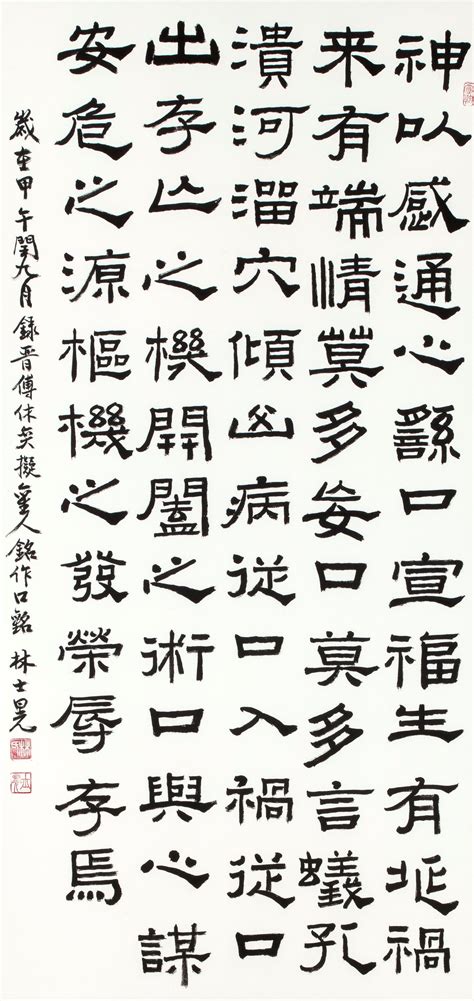 神以感通心繇口宣福生有兆禍
来有端情莫多妄口莫多言蟻孔
潰河溜穴傾山病從口入禍從口
出存亡之機開闔之術口與心謀
安危之源樞機之發榮辱存焉
歲在甲午閏九月錄晉傅休奕擬金人銘作口銘 林士晃